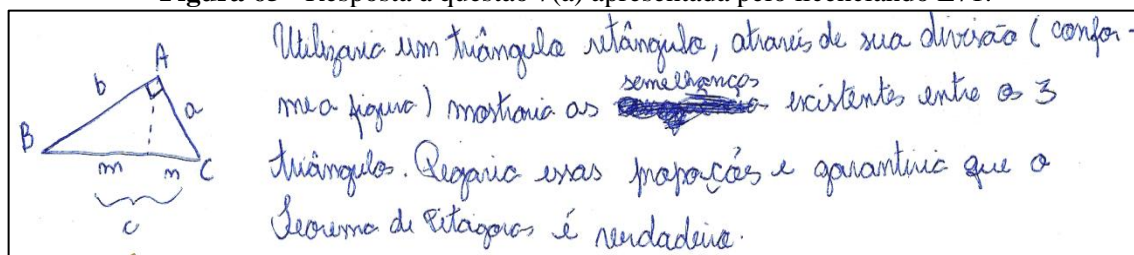 Figura 63 - Resposta à questão 7(a) apresentada pelo licenciando LV1.
A
b
a
B
m
n
C
c
Utilizaria um triângulo retângulo, através de sua divisão (confor-
me a figura) mostraria as semelhanças existentes entre os 3
triângulos. Pegaria essas proporções e garantiria que o
Teorema de Pitágoras é verdadeiro.